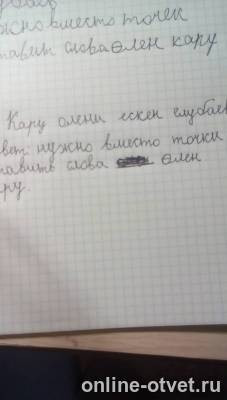 жно вместо точек
тавит слова өлен кару
Кару олени ескен
вет: нужно вместо точки
тавить слова өлен
ру.
online-otvet.ru